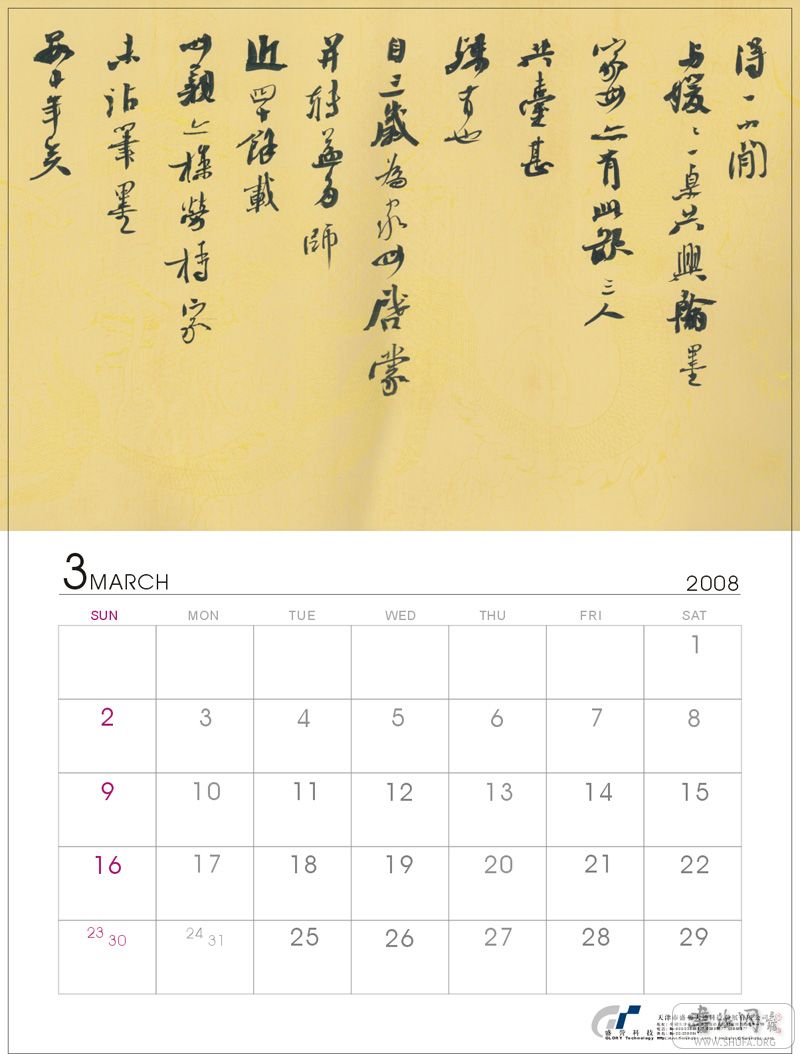 得一小閒
与媛々一桌共興翰墨
家母亦有此 三人
共臺甚
有也
自三歲為家母啓蒙
并轉益多師
近四十餘載
母親亦操勞持家
未沾筆墨
十年矣
3 MARCH 2008
SUN MON TUE WED THU FRI SAT
1
2 3 4 5 6 7 8
9 10 11 12 13 14 15
16 17 18 19 20 21 22
23 30 24 31 25 26 27 28 29
盛誉科技
GLORY Technology
書法网
WWW.SHUFA.ORG